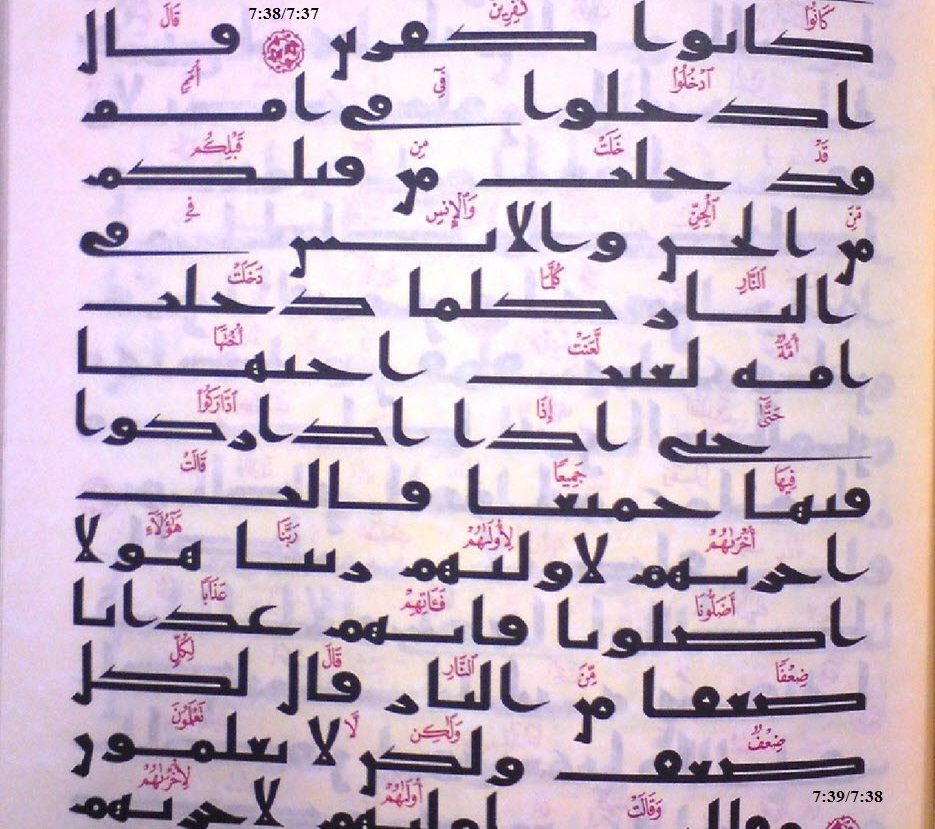 7:38/7:37
كَانُوا۟ كَـٰفِرِينَ قَالَ
كانوا كفرين قال
ٱدْخُلُوا۟ فِىٓ أُمَمٍ
ادخلوا في امم
قَدْ خَلَتْ مِن قَبْلِكُم
قد خلت من قبلكم
مِّنَ ٱلْجِنِّ وَٱلْإِنسِ فِى
من الجن والانس في
ٱلنَّارِ كُلَّمَا دَخَلَتْ
النار كلما دخلت
أُمَّةٌ لَّعَنَتْ أُخْتَهَا
امة لعنت اختها
حَتَّىٰٓ إِذَا ٱدَّارَكُوا۟
حتى اذا اداركوا
فِيهَا جَمِيعًا قَالَتْ
فيها جميعا قالت
أُخْرَىٰهُمْ لِأُولَىٰهُمْ رَبَّنَا هَـٰٓؤُلَآءِ
اخريهم لاوليهم ربنا هولا
أَضَلُّونَا فَـَٔاتِهِمْ عَذَابًا
اضلونا فاتهم عذابا
ضِعْفًا مِّنَ ٱلنَّارِ قَالَ لِكُلٍّ
ضعفا من النار قال لكل
ضِعْفٌ وَلَـٰكِن لَّا تَعْلَمُونَ
ضعف ولكن لا تعلمون
7:39/7:38
وَقَالَتْ أُولَىٰهُمْ لِأُخْرَىٰهُمْ
وقالت اوليهم لاخريهم